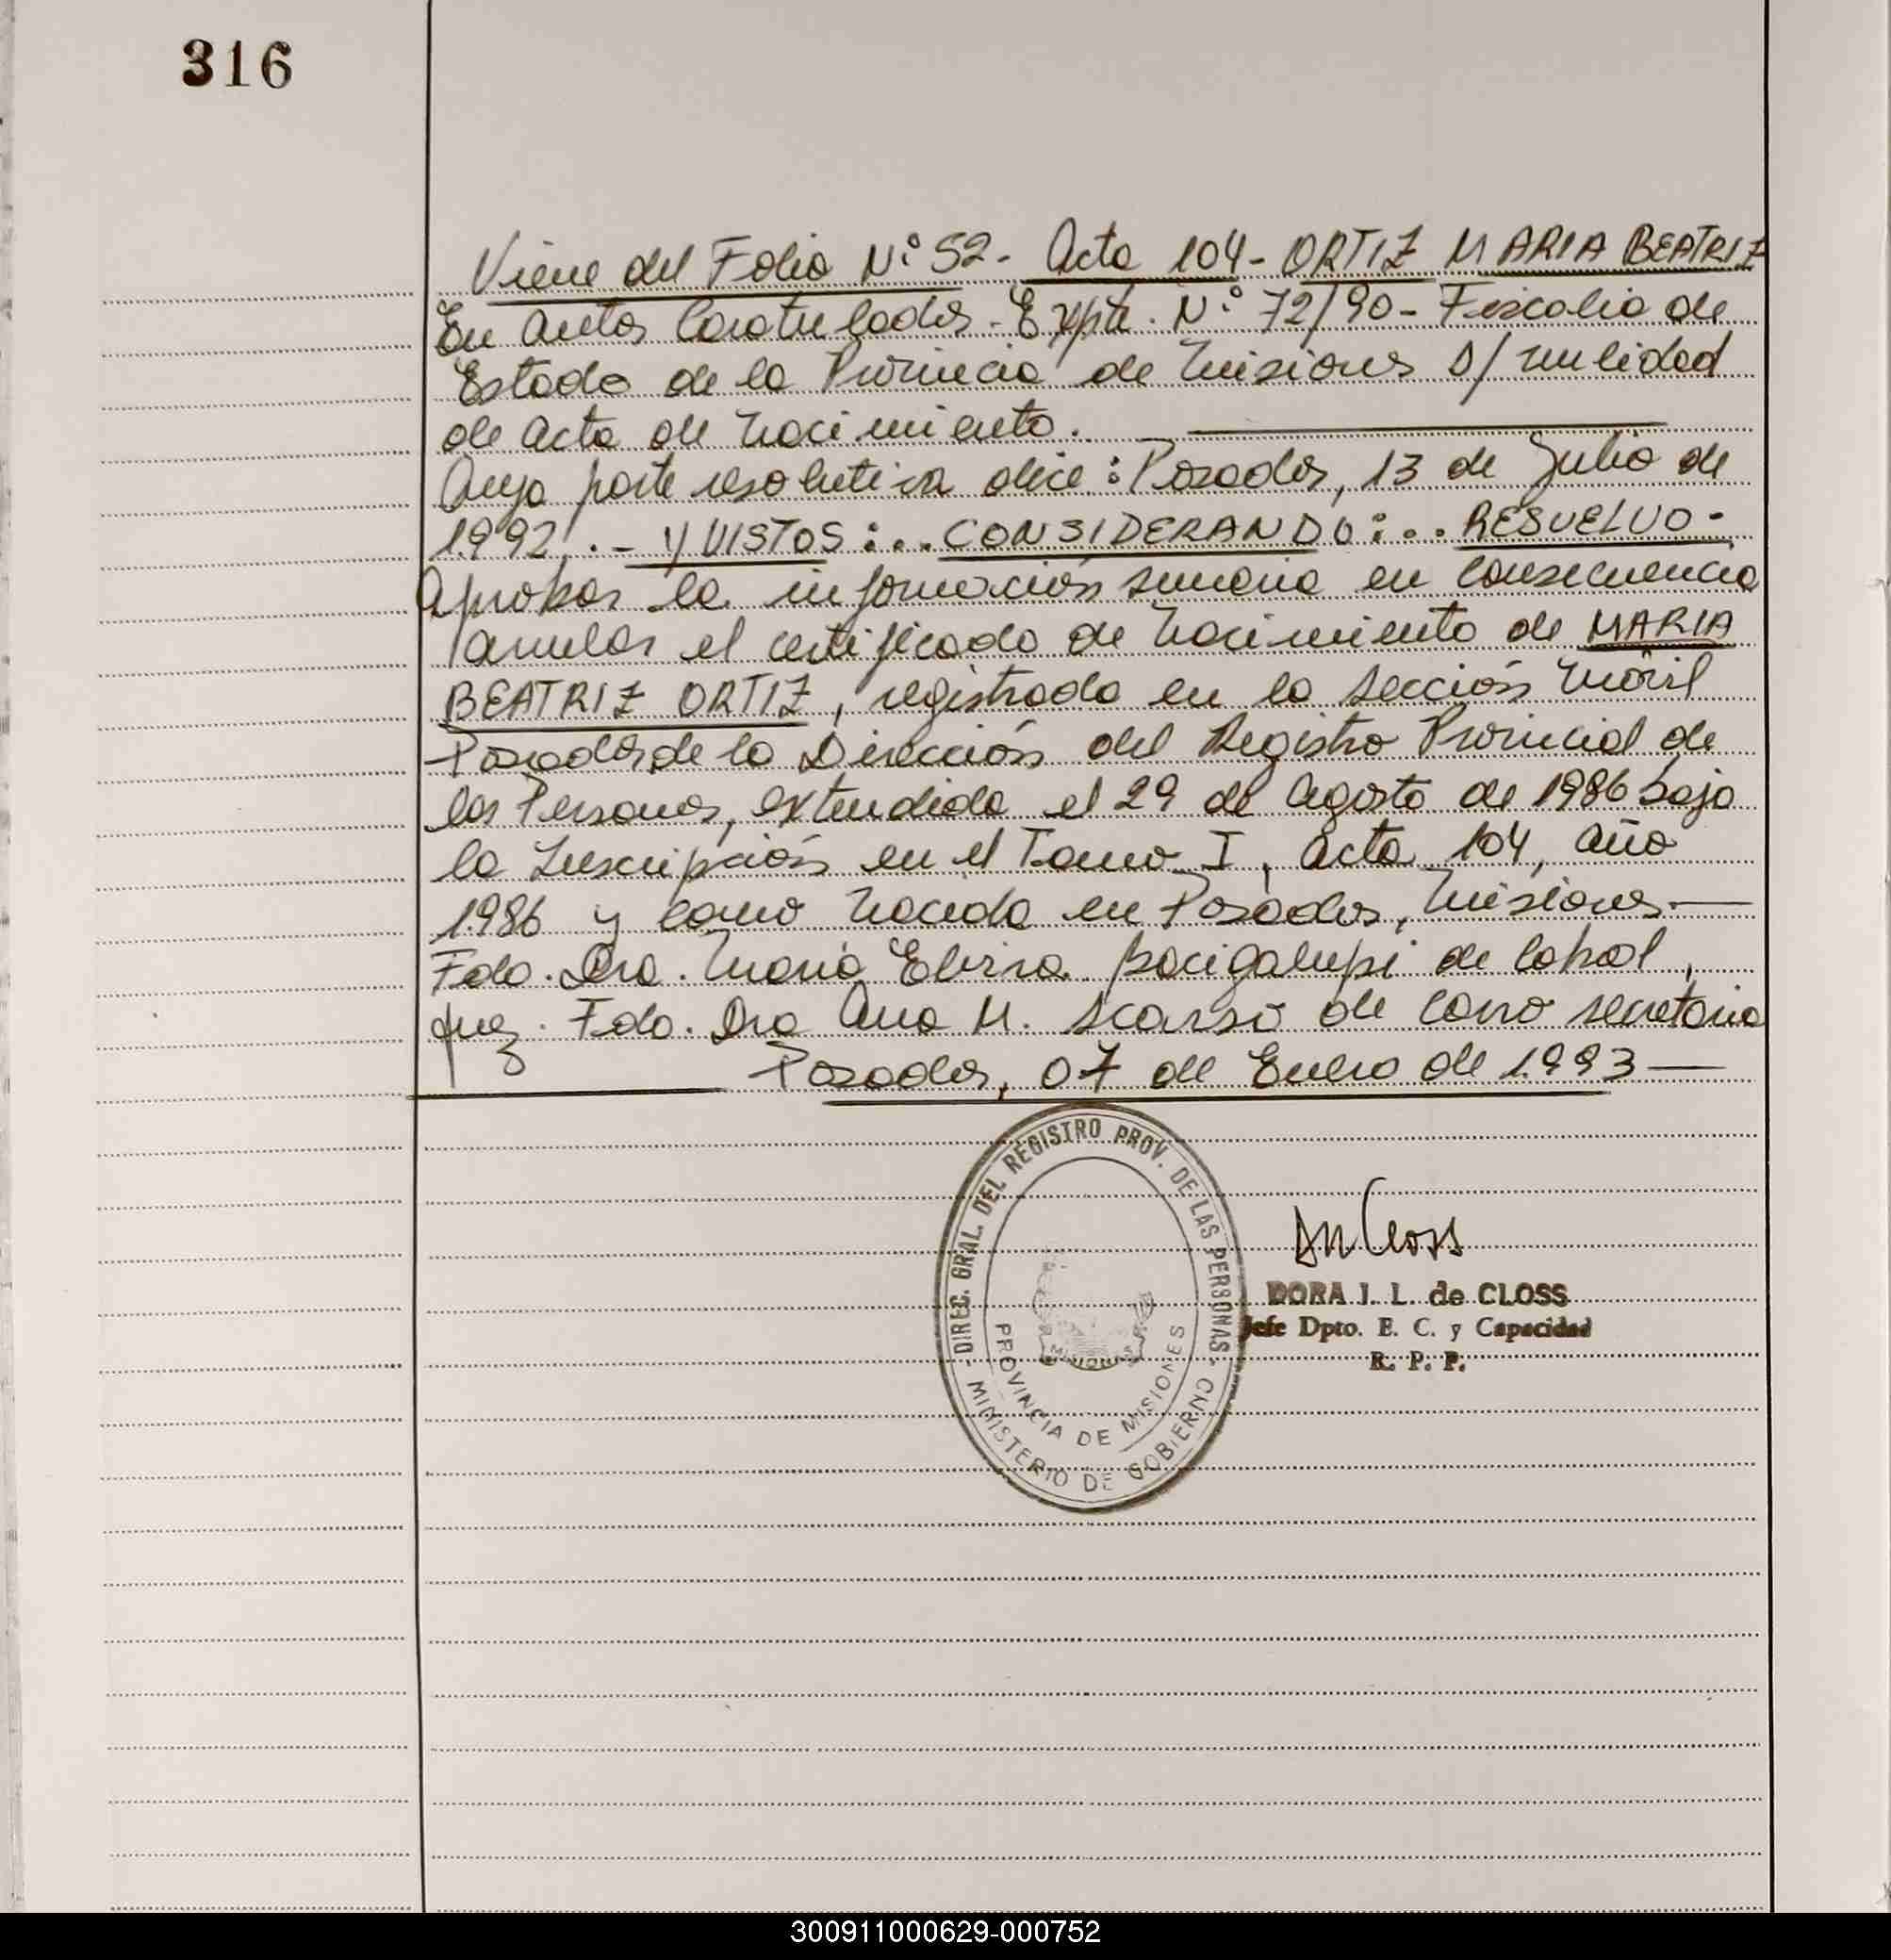 316
Viene del Folio N° 52 - Acta 104 - ORTIZ MARIA BEATRIZ
En autos Caratulados - Expte. N° 72/90 - Fiscalia de
Estado de la Provincia de Misiones S/ nulidad
de Acta de Nacimiento.
Cuya parte resolutiva dice: Posadas, 13 de Julio de
1992. - Y VISTOS:... CONSIDERANDO:... RESUELVO -
Aprobar la información sumaria en consecuencia
anular el certificado de Nacimiento de MARIA
BEATRIZ ORTIZ, registrada en la Sección Móvil
Posadas, de la Dirección del Registro Provincial de
las Personas, extendida el 29 de Agosto de 1986 bajo
la Inscripción en el Tomo I, Acta 104, año
1986 y como Nacida en Posadas, Misiones.—
Fdo. Dra. María Elvira Bacigalupi de Cabral,
Juez. Fdo. Dra Ana M. Scarso de Carro secretaria
Posadas, 07 de Enero de 1993 —
- DIREC. GRAL. DEL REGISTRO PROV. DE LAS PERSONAS -
MINISTERIO DE GOBIERNO
PROVINCIA DE MISIONES
MISIONES
DORA I. L. de CLOSS
Jefe Dpto. E. C. y Capacidad
R. P. P.
300911000629-000752